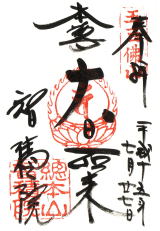 奉拝
平成十五年
七月廿七日
本尊
大日如来
智積院
總本山